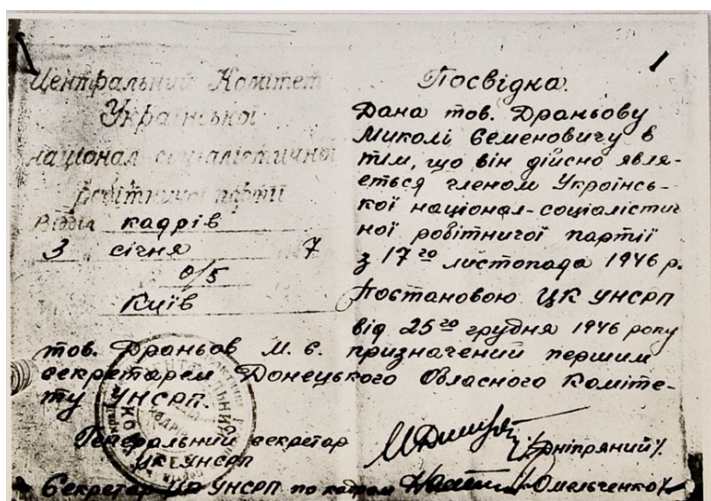 Центральний Комітет
Української
націонал соціалістичної
робітничої партії
Відділ кадрів
3 січня 7
0/5
Київ
Посвідка.
Дана тов. Драньову
Миколі Семеновичу в
тім, що він дійсно явля-
ється членом Українсь-
кої націонал-соціалістич
ної робітничої партії
з 17го листопада 1946 р.
Постановою ЦК УНСРП
від 25го грудня 1946 року
тов. Драньов М. С. призначений першим
секретарем Донецького Обласного Коміте-
ту УНСРП.
Генеральний секретар
ЦК УНСРП /Дніпряний/.
Секретар ЦК УНСРП по кадрам /Омельченко/